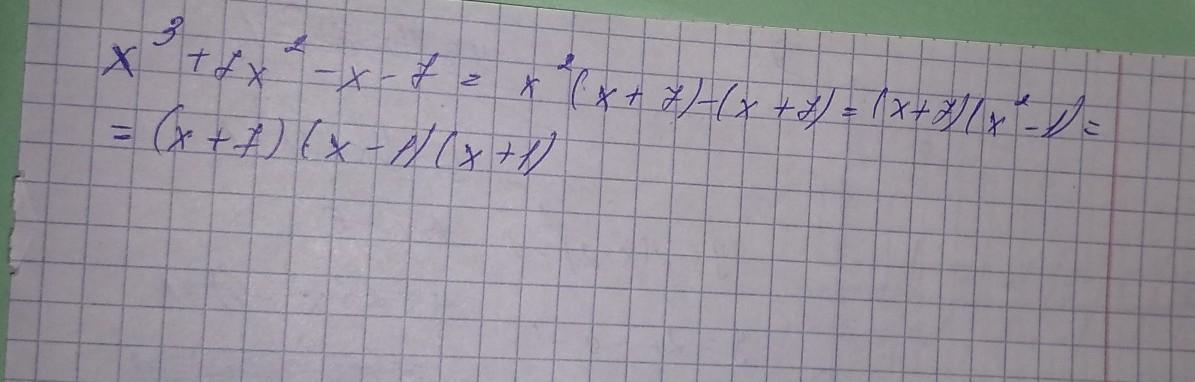 x³ + 7x² - x - 7 = x²(x + 7) - (x + 7) = (x + 7)(x² - 1) =
= (x + 7)(x - 1)(x + 1)